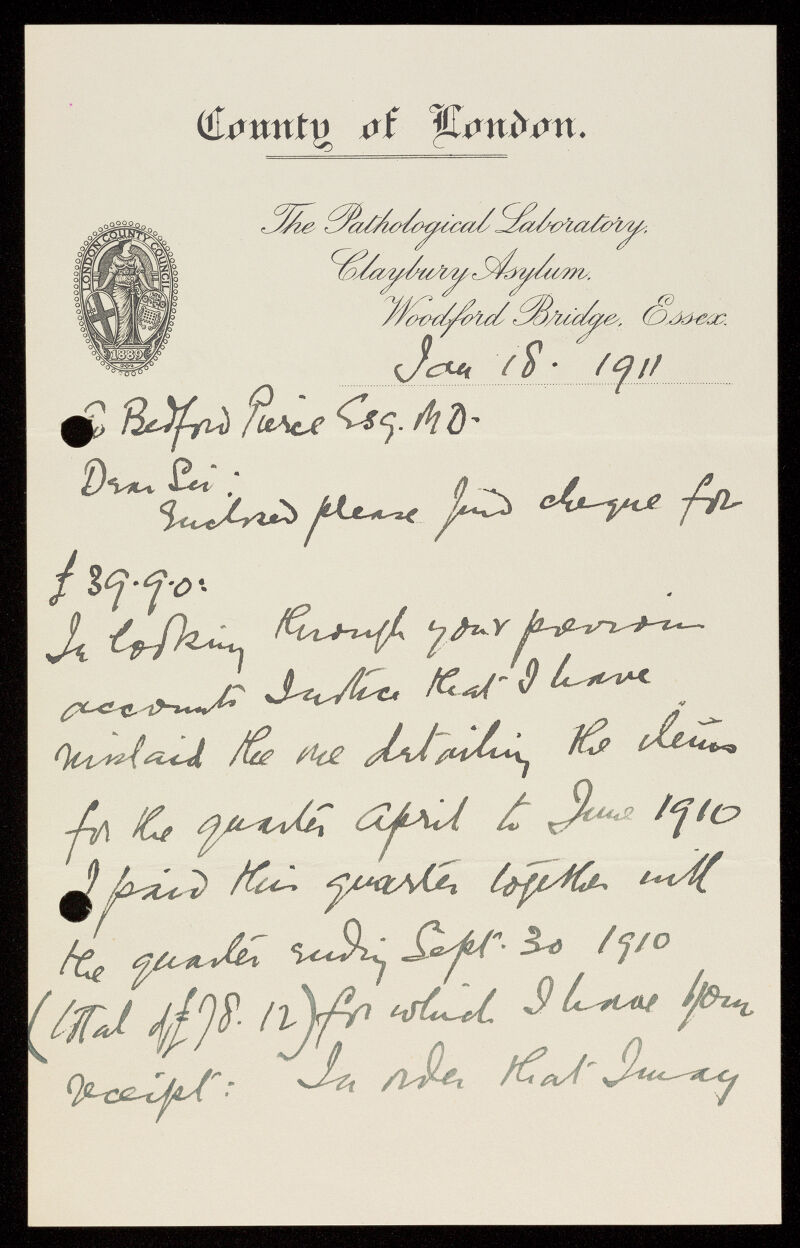 County of London.
LONDON COUNTY COUNCIL
1889
The Pathological Laboratory,
Claybury Asylum,
Woodford Bridge, Essex.
Jan 18. 1911
To Bedford Pierce Esq. MD.
Dear Sir:
Enclosed please find cheque for
£39.9.0:
In looking through your previous
accounts I notice that I have
mislaid the one detailing the items
for the quarter April to June 1910
I paid this quarter together with
the quarter ending Sept. 30 1910
(total of £78.12) for which I have your
receipt: In order that I may